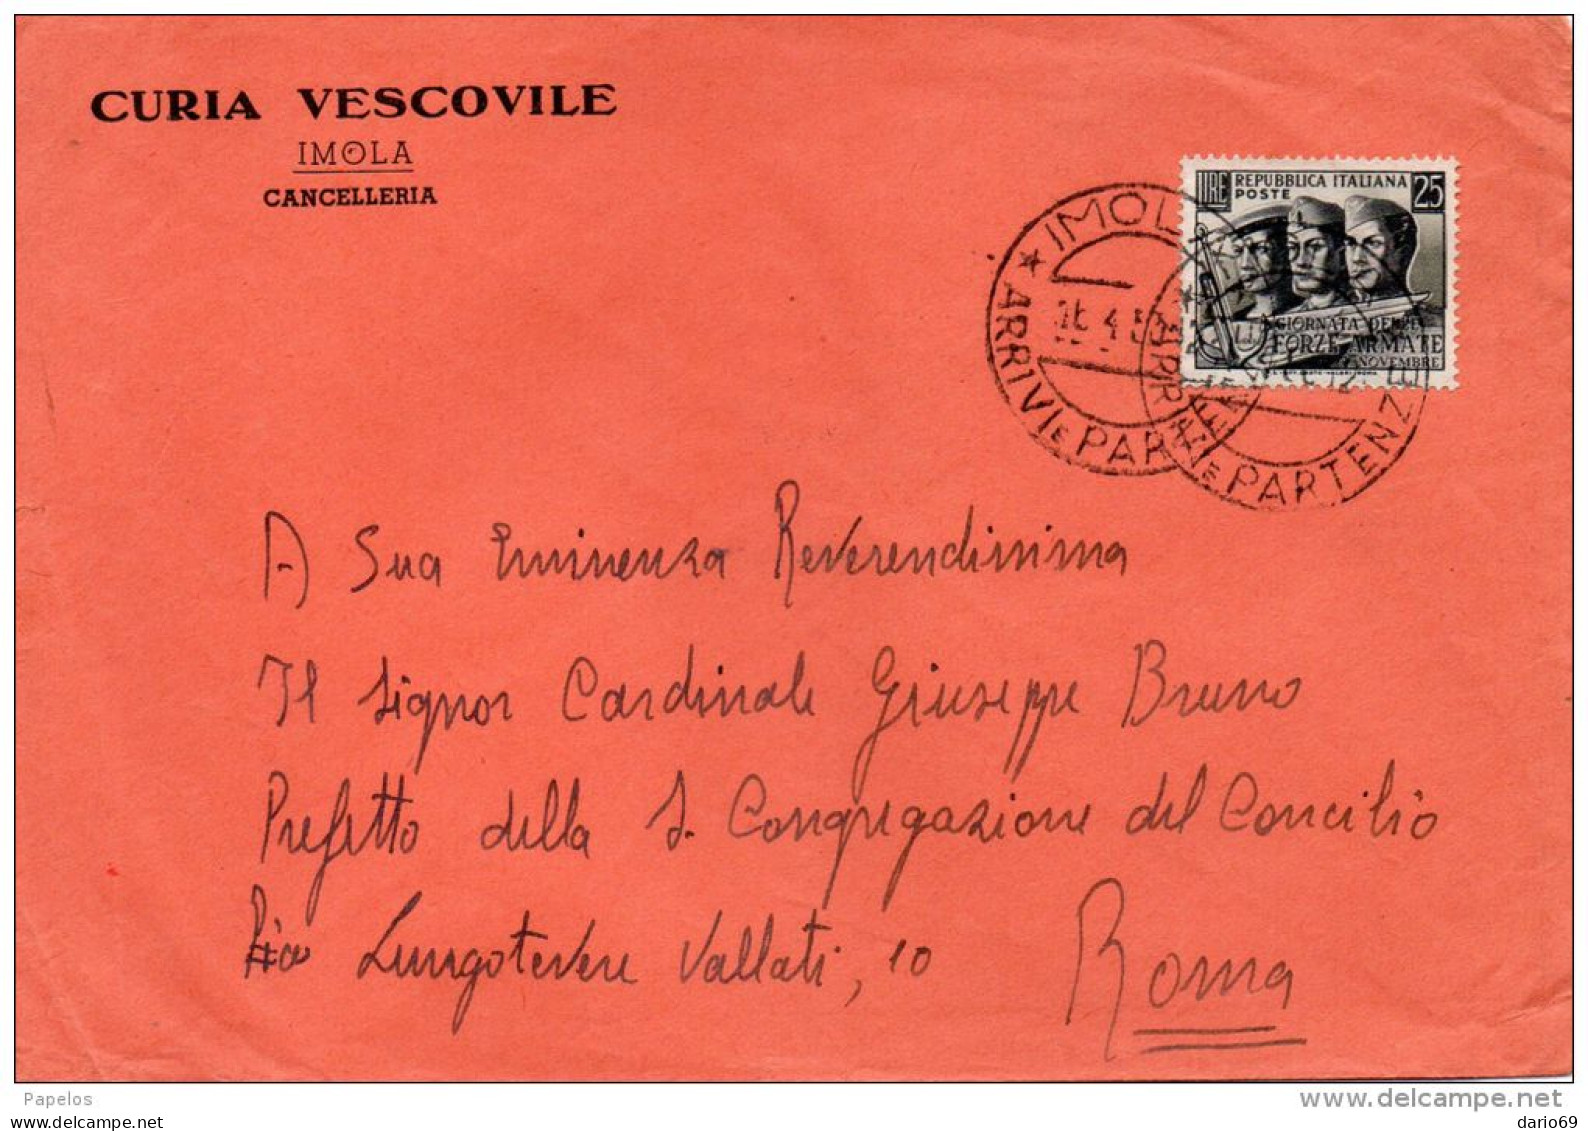 CURIA VESCOVILE
IMOLA
CANCELLERIA
LIRE REPUBBLICA ITALIANA 25
POSTE
GIORNATA DELLE
FORZE ARMATE
NOVEMBRE
IMOLA
ARRIVI E PARTENZE
ARRIVI E PARTENZE
A Sua Eminenza Reverendissima
Il Signor Cardinale Giuseppe Bruno
Prefetto della S. Congregazione del Concilio
Via Lungotevere Vallati, 10 Roma
Papelos
www.delcampe.net
www.delcampe.net
dario69